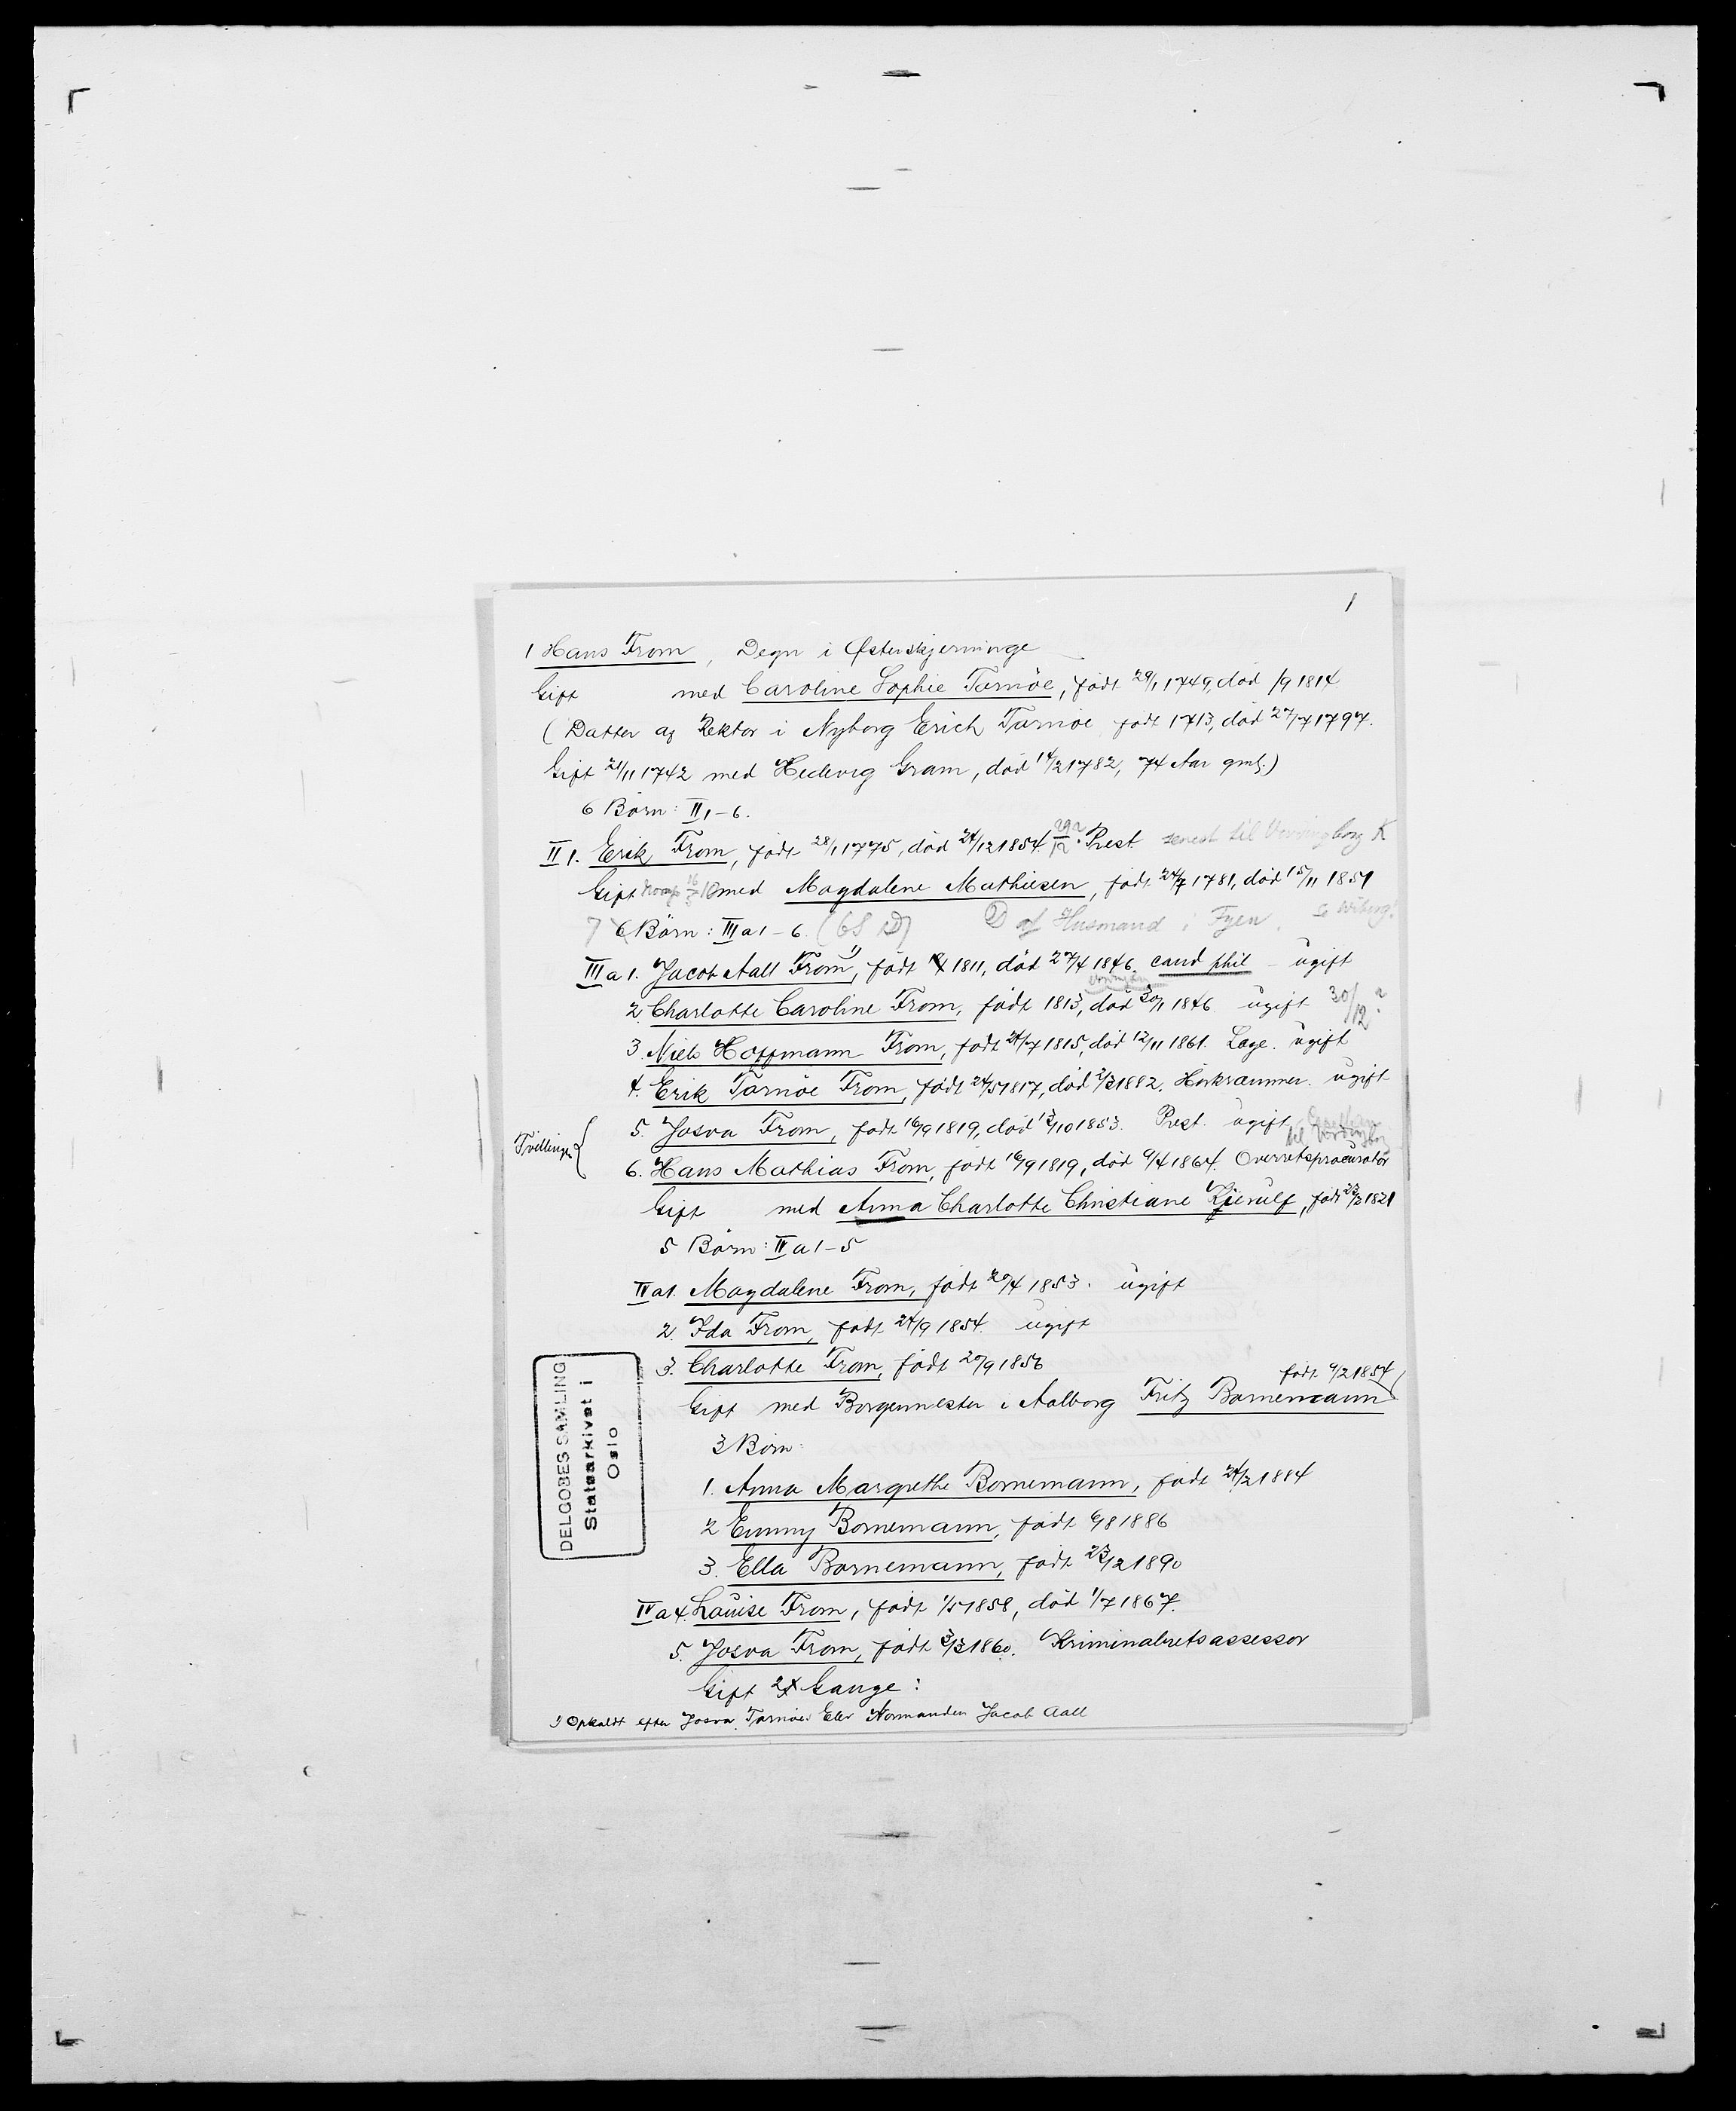 1
1 Hans From, Degn i Østerskjerninge
Gift med Caroline Sophie Tarnöe, född 29/1 1749, död /9 1814
(Datter af Rektor i Nyborg Erich Tarnöe född 1713, död 27/7 1797.
Gift 21/11 1742 med Hedevig Gram, död 14/2 1782, 74 Aar gml.)
6 Börn: II 1-6.
II 1. Erik From, født 28/1 1775, död 24/12 1854. 29?/12 Prest senest til Vordingborg K
Gift med Magdalene Mathiesen, født 24/7 1781, död 15/11 1851
7 6 Börn: III a 1-6. (6S 1D) D af Husmand i Fyen. Se Wiberg!
III a 1. Jacob Aall From 1), født 1811, död 27/4 1846. cand phil - ugift
2. Charlotte Caroline From, født 1813, död 30/1 1846 ugift 30/12?
3. Niels Hoffmann From, født 24/7 1815, död 12/11 1861. Læge. ugift
4. Erik Tarnöe From, født 24/5 1817, död 2/3 1882. Hörkræmmer. ugift
5. Josva From, født 16/9 1819, död 13/10 1853. Prest. ugift
til Vordingborg
Tvillinger
6. Hans Mathias From, født 16/9 1819, död 6/4 1864. Overretsprocurator
Gift med Anna Charlotte Christiane Kjerulf, født 23/2 1821
5 Börn: IV a 1-5
IV a 1. Magdalene From, født 20/4 1853. ugift
2. Ida From, født 24/9 1854. ugift
3. Charlotte From, født 20/9 1856
født 9/2 1854
Gift med Borgermester i Aalborg Fritz Bornemann
3 Börn:
1. Anna Margrethe Bornemann, født 24/2 1884
2 Emmy Bornemann, født 6/8 1886
3. Ella Bornemann, født 23/12 1890
IV a 4. Louise From, født 1/5 1858, död 1/7 1867.
5. Josva From, født 3/3 1860. Kriminalretsassessor
Gift 2 Gange:
1) Opkaldt efter Josva Tarnöes Elev Normanden Jacob Aall
DELGOBES SAMLING
Statsarkivet i
Oslo